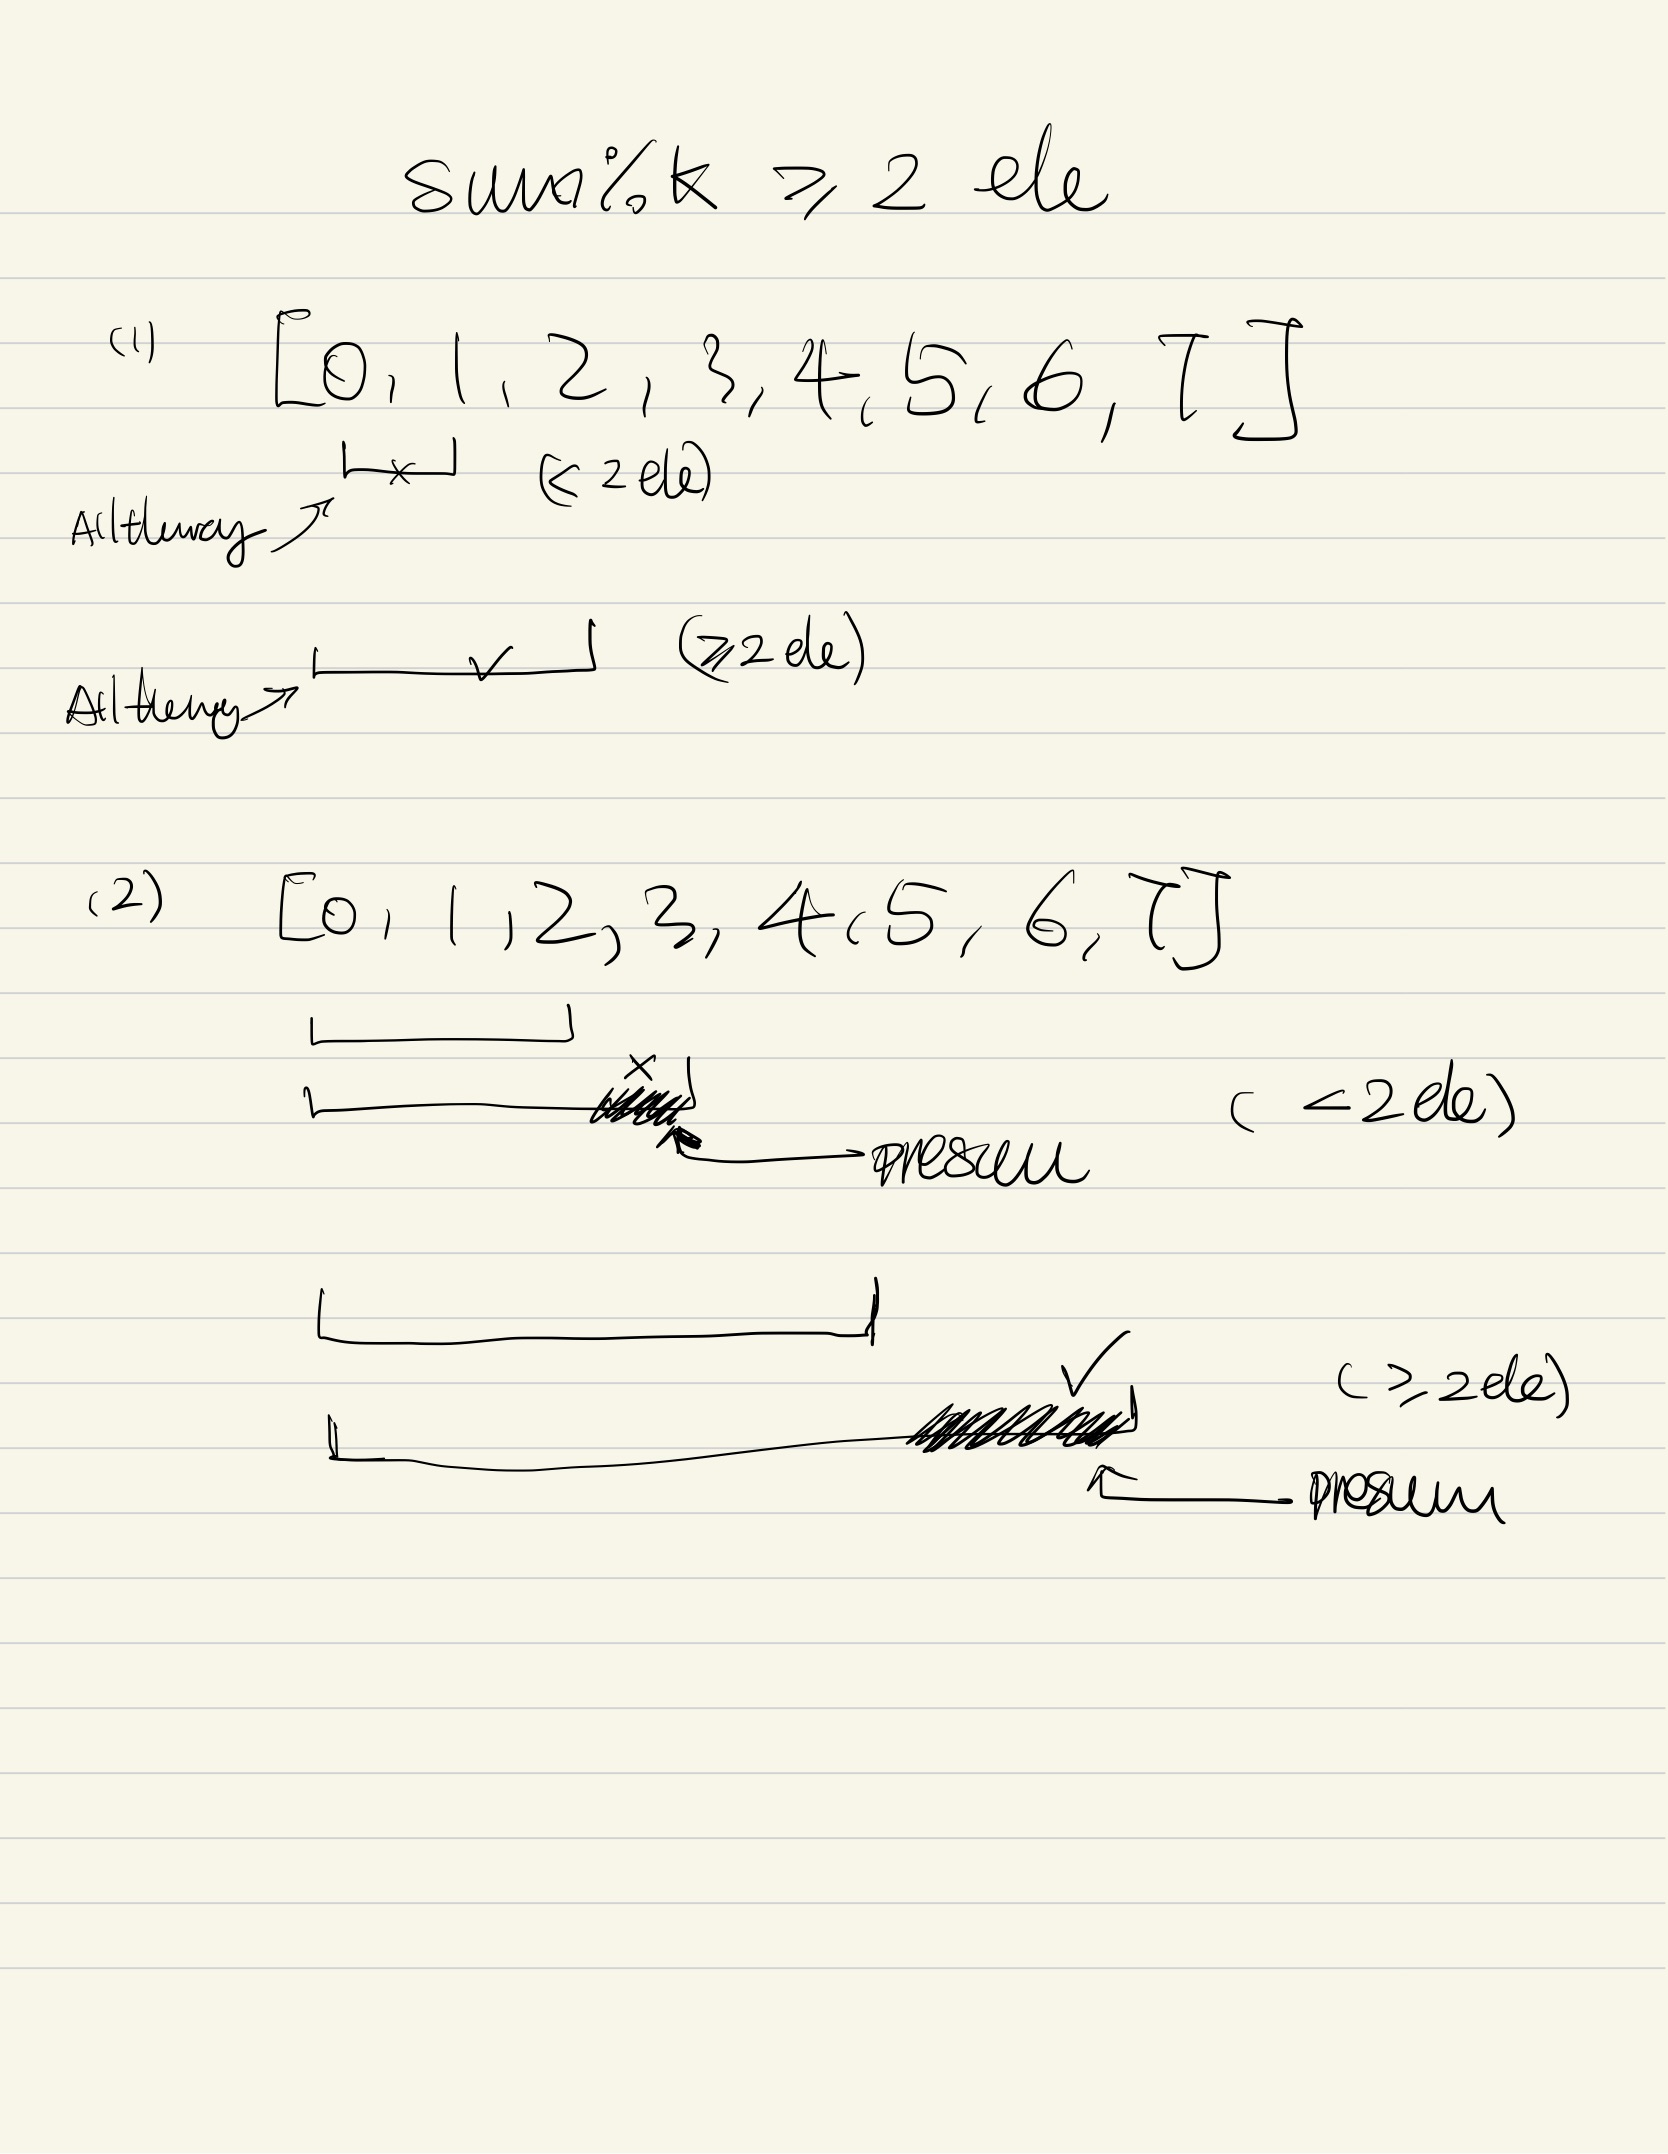 sum%k ≥ 2 ele
(1) [0, 1, 2, 3, 4, 5, 6, 7]
(< 2 ele)
All the way
(≥ 2 ele)
All the way
(2) [0, 1, 2, 3, 4, 5, 6, 7]
(< 2 ele)
presum
(≥ 2 ele)
presum